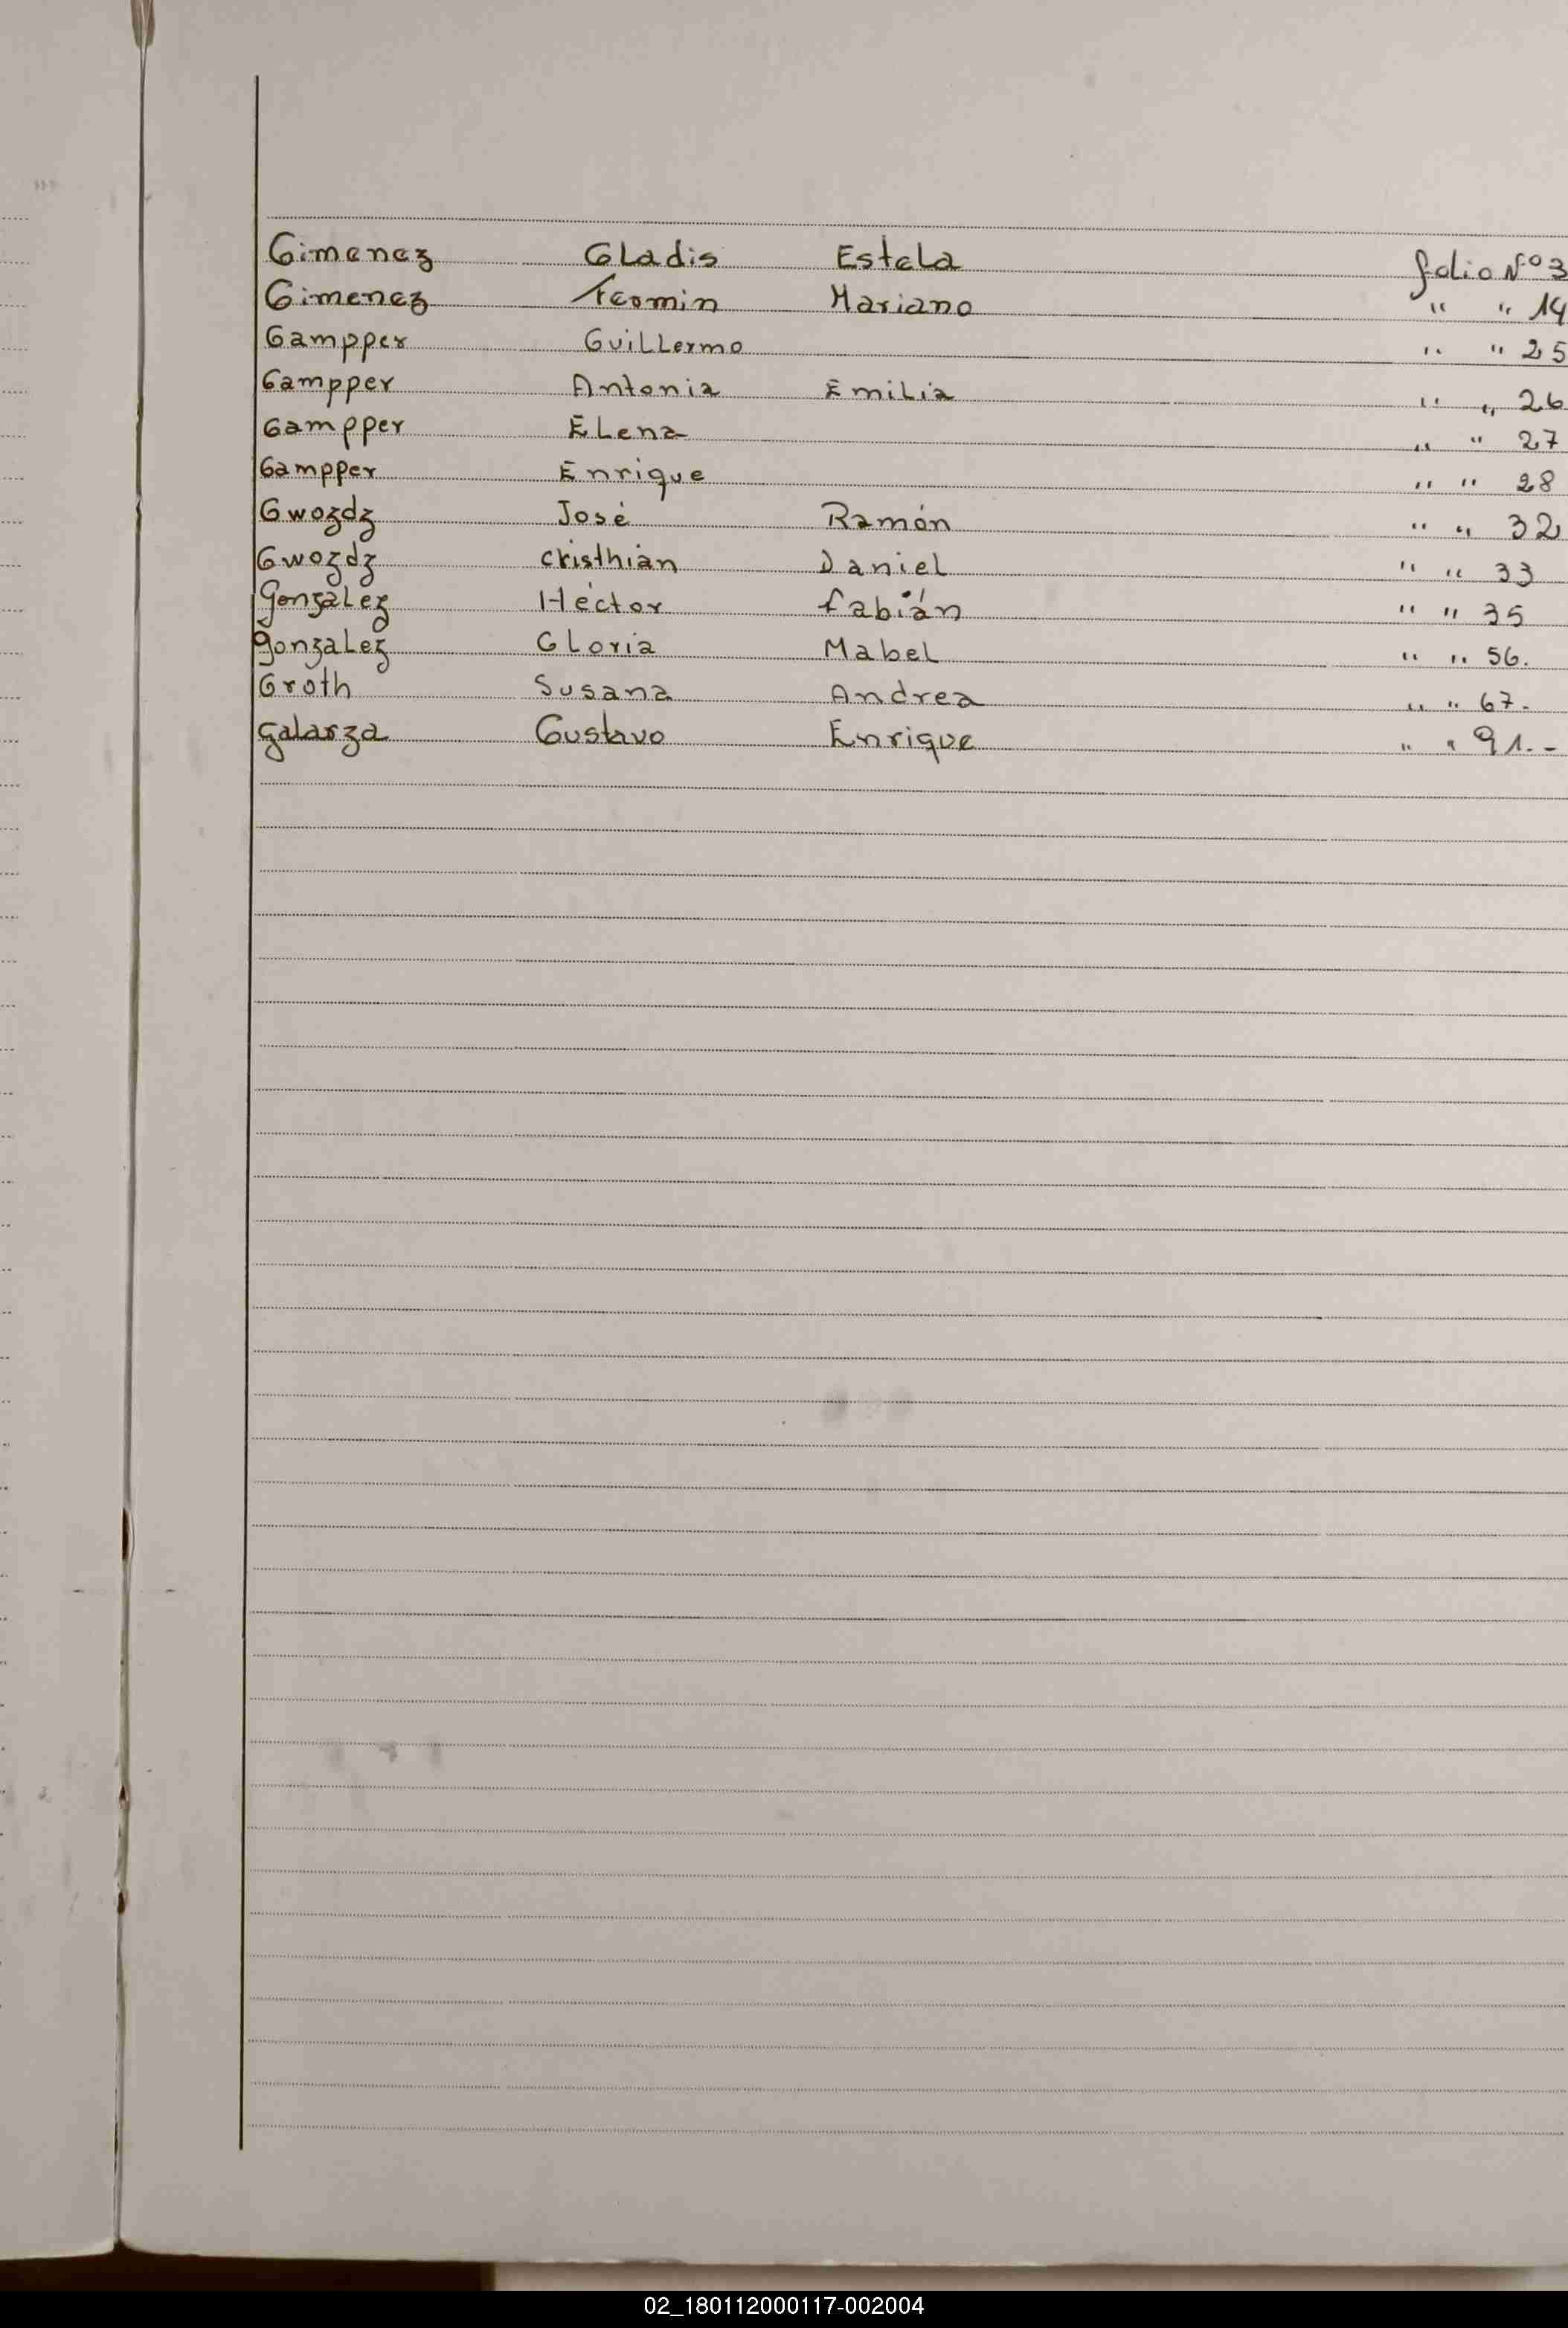 Gimenez Gladis Estela folio Nº 3
Gimenez Mariano " " 14
Gampper Guillermo " " 25
Gampper Antonia Emilia " " 26
Gampper Elena " " 27
Gampper Enrique " " 28
Gwozdz José Ramón " " 32
Gwozdz Cristhian Daniel " " 33
González Héctor Fabián " " 35
Gonzalez Gloria Mabel " " 56.
Groth Susana Andrea " " 67.-
Galarza Gustavo Enrique " " 91.-
02_180112000117-002004